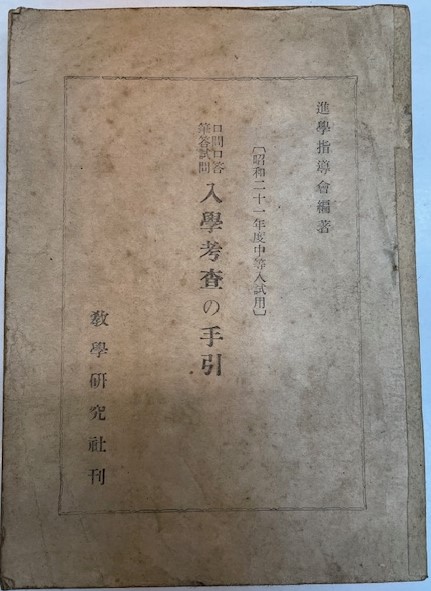 進學指導會編著
〔昭和二十一年度中等入試用〕
口問口答
筆答試問
入學考査の手引
敎學硏究社刊